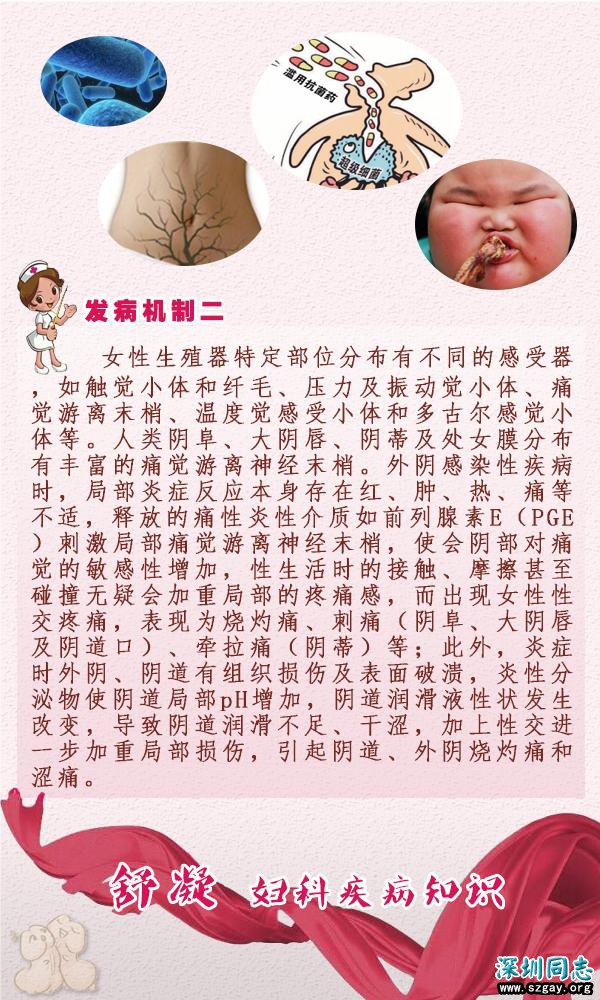 滥用抗菌药
超级细菌
发病机制二
女性生殖器特定部位分布有不同的感受器
，如触觉小体和纤毛、压力及振动觉小体、痛
觉游离末梢、温度觉感受小体和多古尔感觉小
体等。人类阴阜、大阴唇、阴蒂及处女膜分布
有丰富的痛觉游离神经末梢。外阴感染性疾病
时，局部炎症反应本身存在红、肿、热、痛等
不适，释放的痛性炎性介质如前列腺素E（PGE
）刺激局部痛觉游离神经末梢，使会阴部对痛
觉的敏感性增加，性生活时的接触、摩擦甚至
碰撞无疑会加重局部的疼痛感，而出现女性性
交疼痛，表现为烧灼痛、刺痛（阴阜、大阴唇
及阴道口）、牵拉痛（阴蒂）等；此外，炎症
时外阴、阴道有组织损伤及表面破溃，炎性分
泌物使阴道局部pH增加，阴道润滑液性状发生
改变，导致阴道润滑不足、干涩，加上性交进
一步加重局部损伤，引起阴道、外阴烧灼痛和
涩痛。
舒凝 妇科疾病知识
深圳同志
www.szgay.org